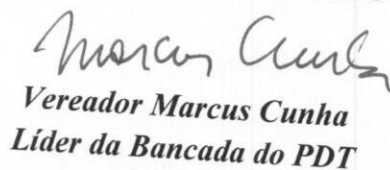 Marcus Cunha
Vereador Marcus Cunha
Líder da Bancada do PDT